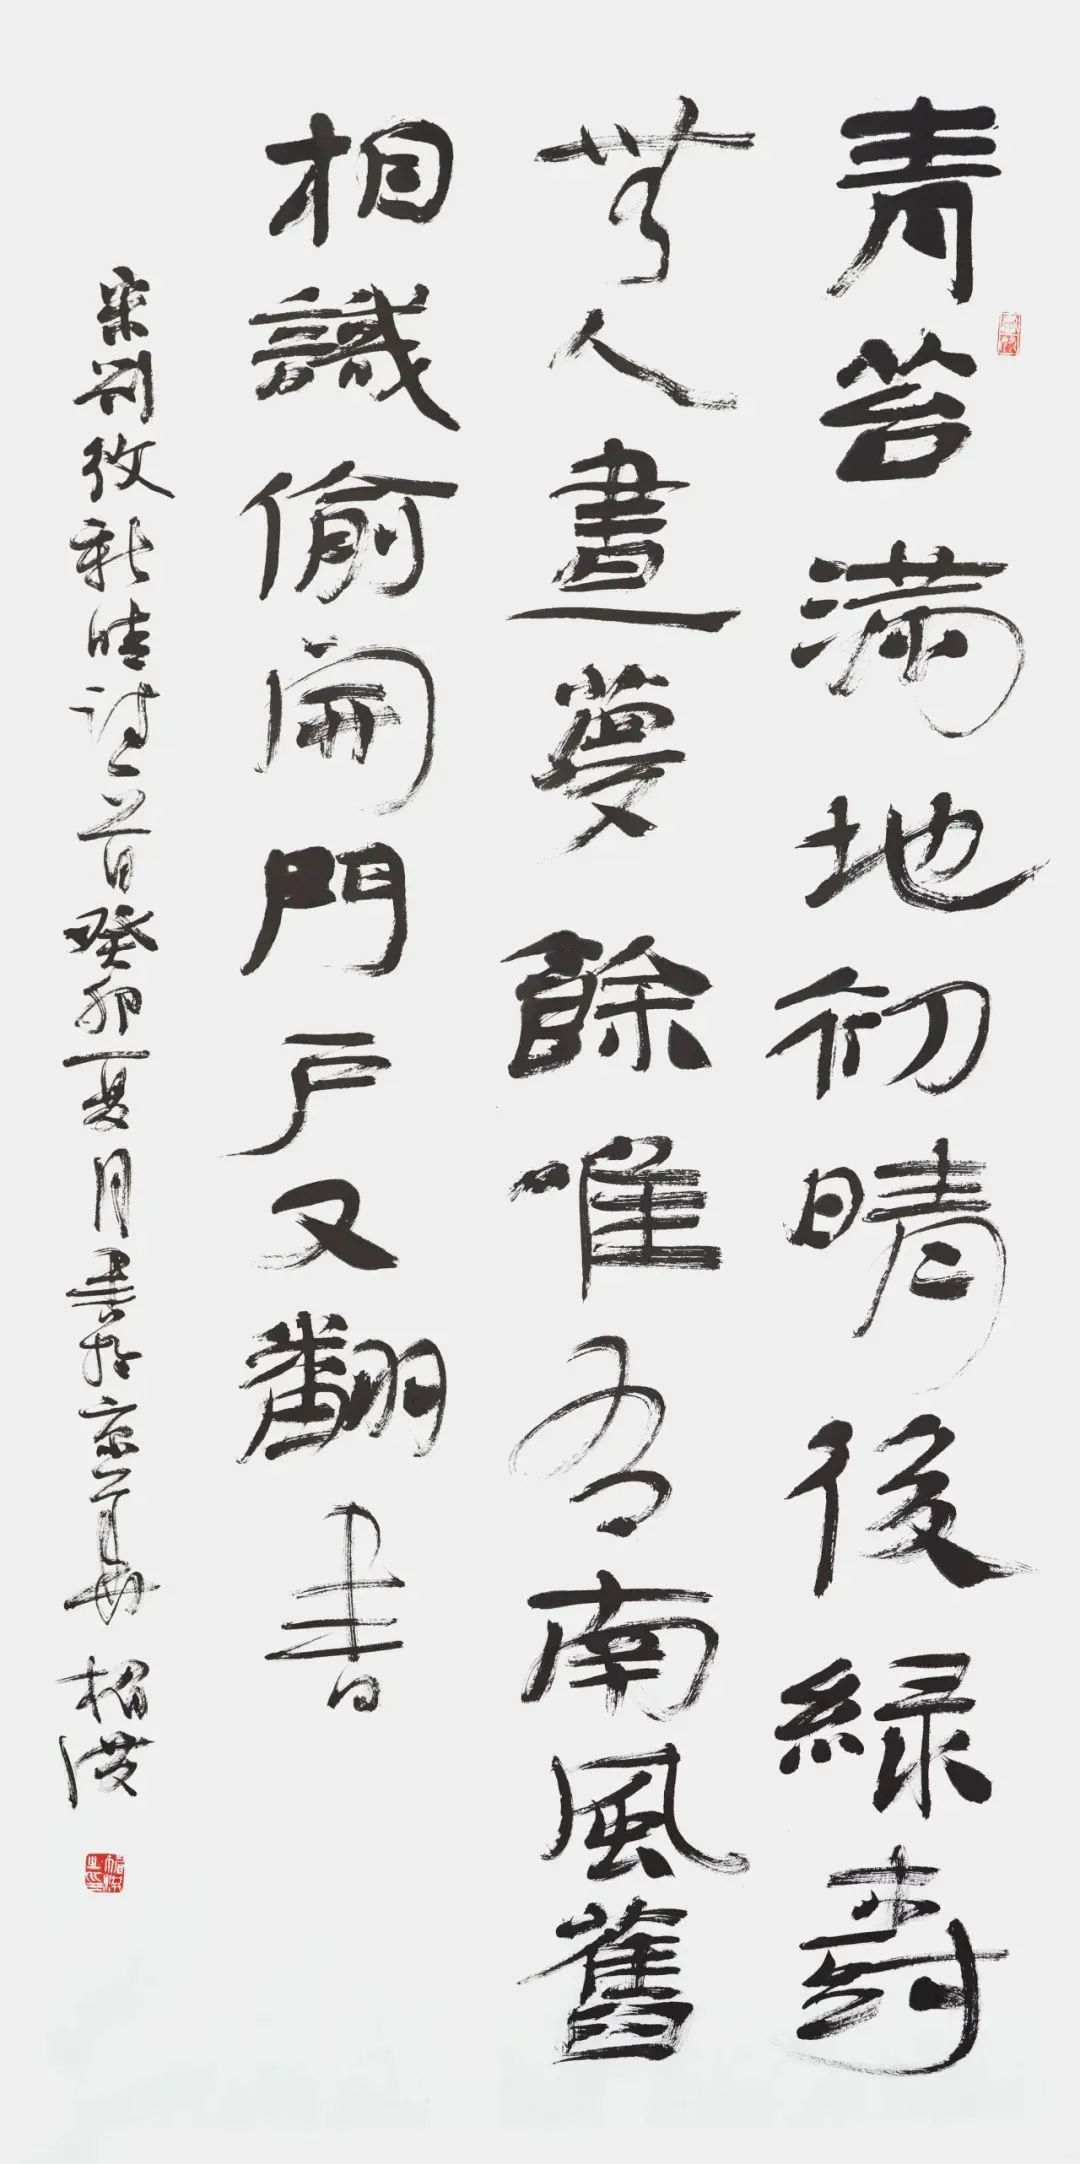 青苔滿地初晴後綠樹
無人晝夢餘唯有南風舊
相識偷開門戶又翻書
宋劉攽新晴詩一首癸卯夏月書於京華